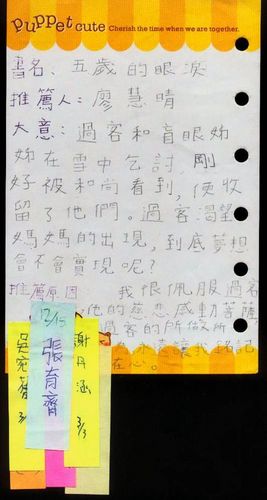 Puppet cute Cherish the time when we are together.
書名、五歲的眼淚
推薦人:廖慧晴
大意:過客和盲眼姊
姊在雪中乞討,剛
好被和尚看到,便收
留了他們。過客渴望
媽媽的出現,到底夢想
會不會實現呢?
推薦原因 我很佩服過客
,他的慈悲感動菩薩
過客的所做所
為永遠讓我銘記
在心。
12/15
張育齊
謝丹涵
3/3
吳宛